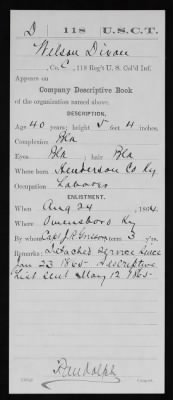 D | 118 | U.S.C.T.
Wilson Dixon
, Co. C, 118 Reg't U. S. Col'd Inf.
Appears on
Company Descriptive Book
of the organization named above.
DESCRIPTION.
Age 40 years; height 5 feet 4 inches.
Complexion Bla
Eyes Bla ; hair Bla
Where born Henderson Co Ky
Occupation Laborer
ENLISTMENT.
When Aug 24 , 1864.
Where Owensboro Ky
By whom Capt J.R. ; term 3 y'rs.
Remarks: Detached Service since
Jan 23 1865- Descriptive
List sent May 12 1865-
Randolph
Copyist.